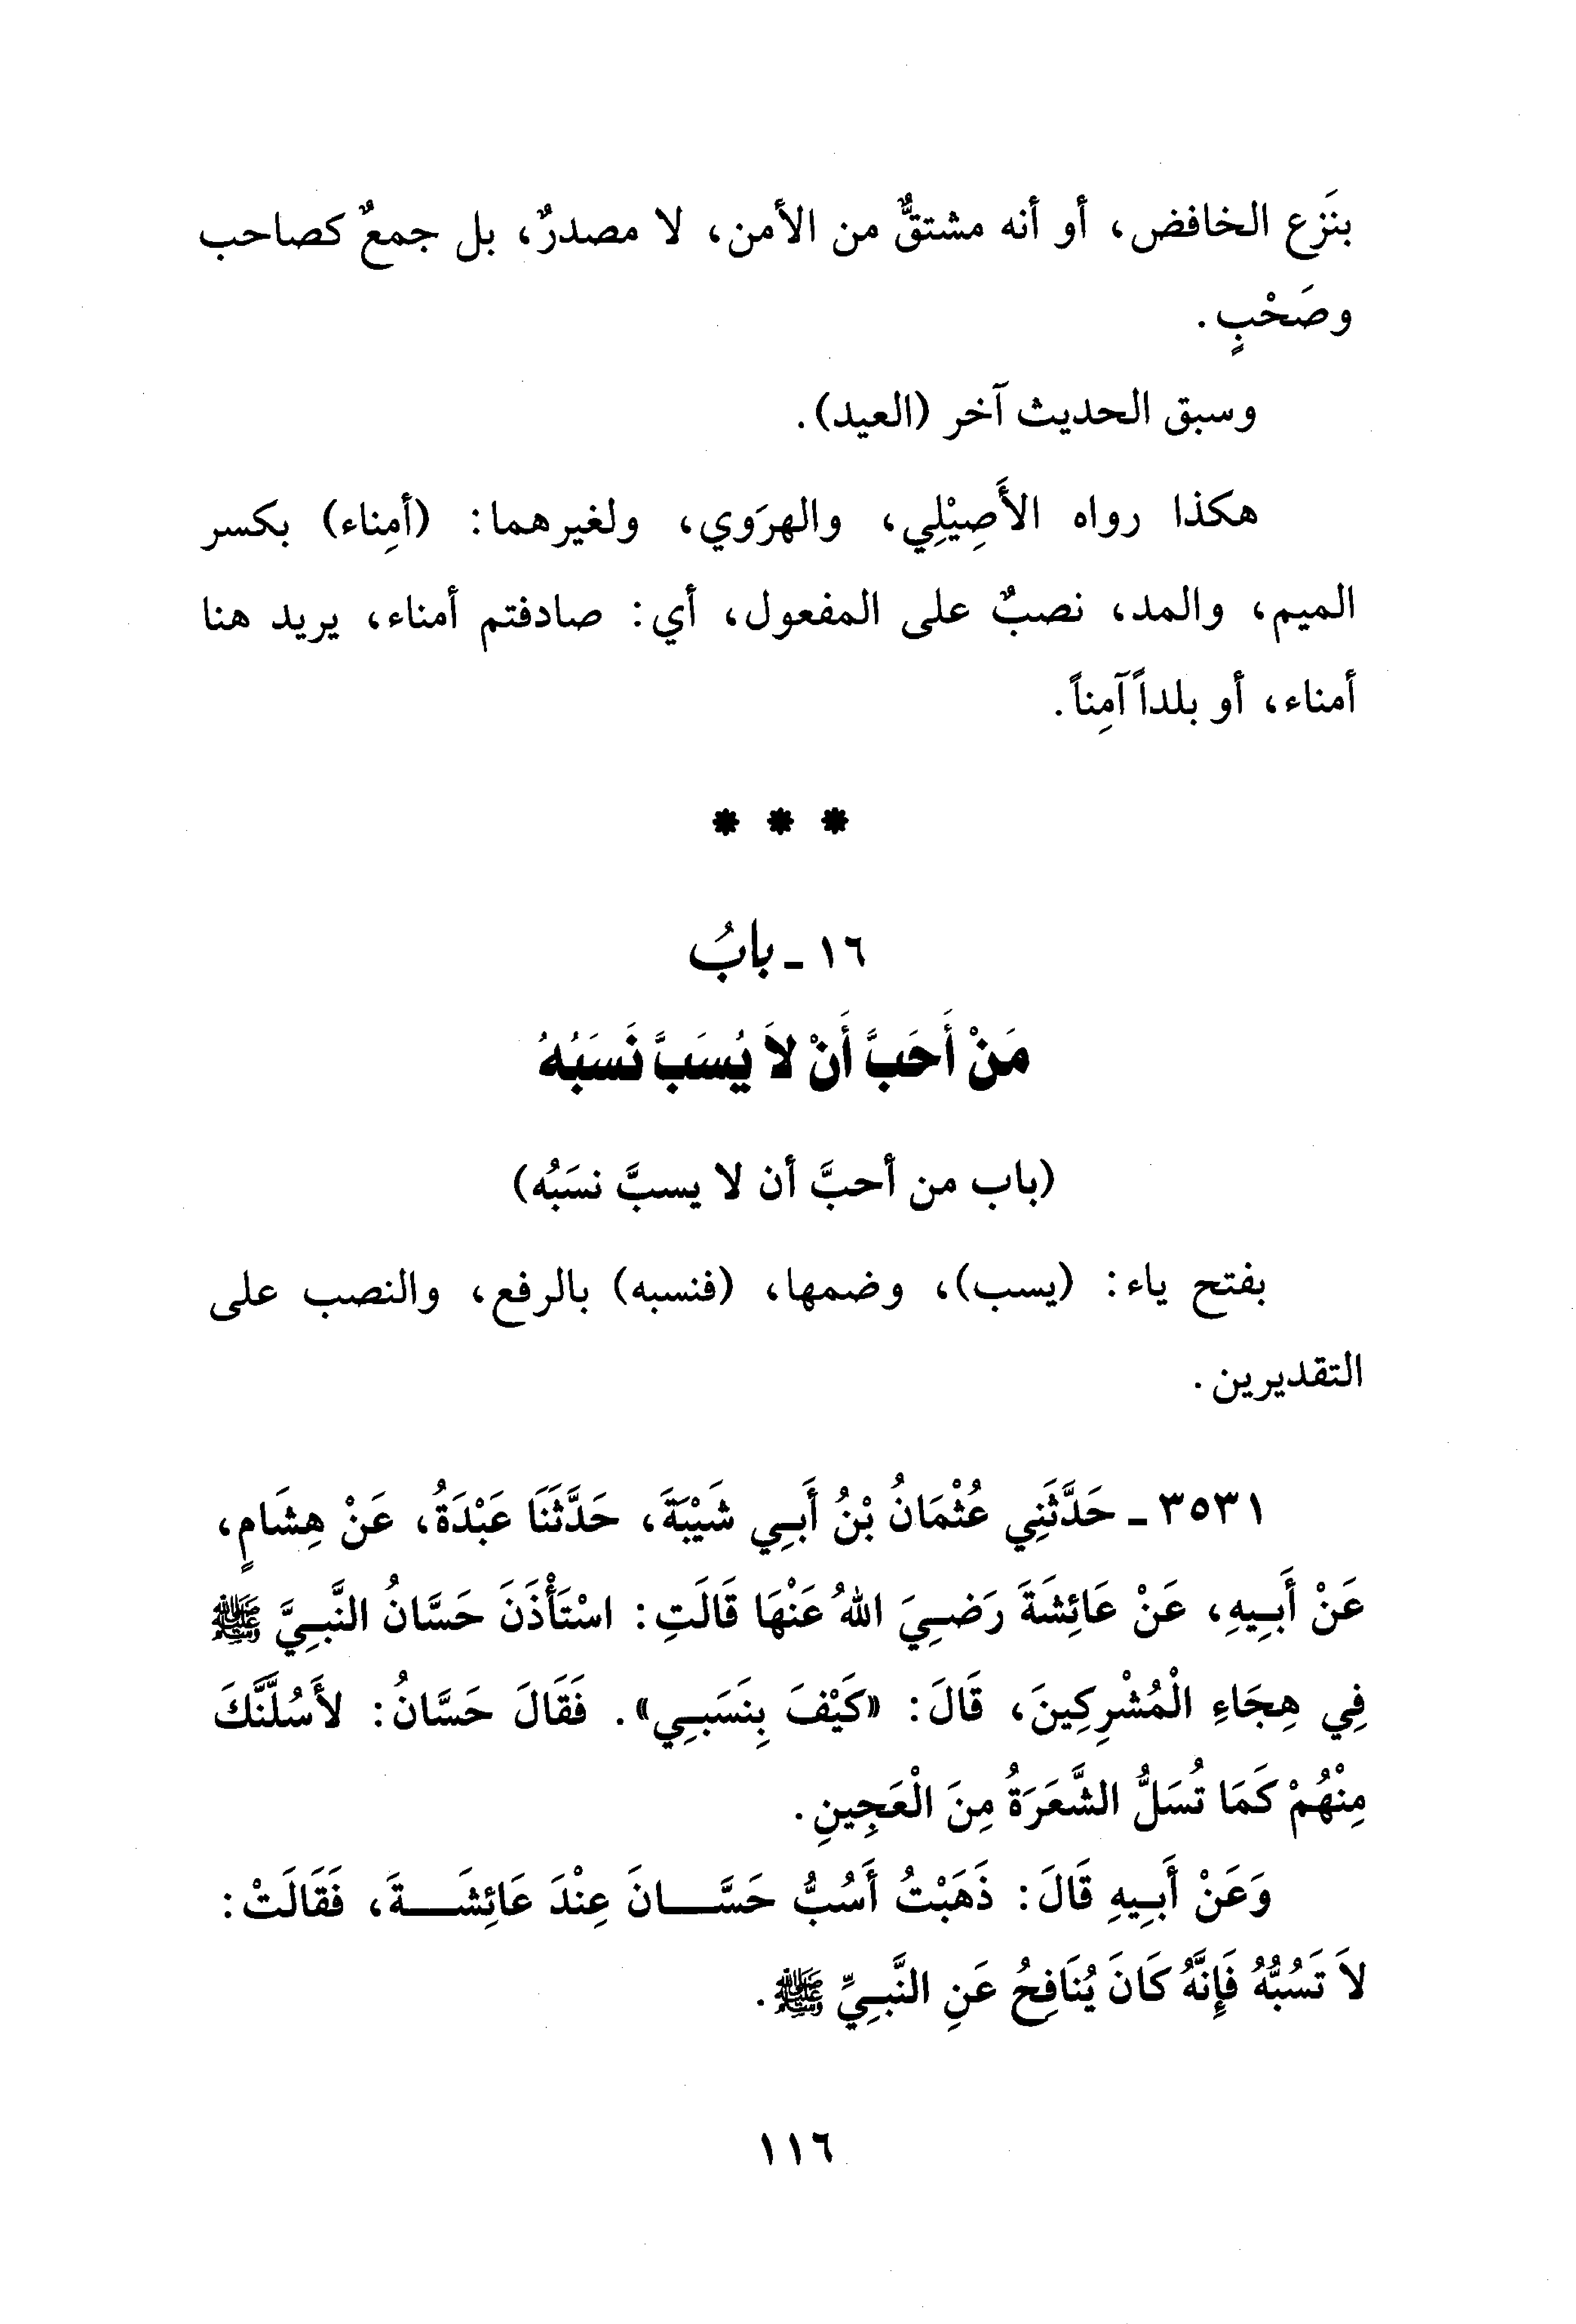 بنَزع الخافض، أو أنه مشتقٌّ من الأمن، لا مصدرٌ، بل جمعٌ كصاحب
وصَحْبٍ.
وسبق الحديث آخر (العيد).
هكذا رواه الأَصِيْلِي، والهرَوي، ولغيرهما: (أمِناء) بكسر
الميم، والمد، نصبٌ على المفعول، أي: صادفتم أمناء، يريد هنا
أمناء، أو بلداً آمِناً.
* * *
١٦ - بابُ
مَنْ أَحَبَّ أَنْ لاَ يُسَبَّ نَسَبُهُ
(باب من أحبَّ أن لا يسبَّ نسَبُه)
بفتح ياء: (يسب)، وضمها، (فنسبه) بالرفع، والنصب على
التقديرين.
٣٥٣١ - حَدَّثَنِي عُثْمَانُ بْنُ أَبِي شَيْبَةَ، حَدَّثَنَا عَبْدَةُ، عَنْ هِشَامٍ،
عَنْ أَبِيهِ، عَنْ عَائِشَةَ رَضِيَ اللهُ عَنْهَا قَالَتِ: اسْتَأْذَنَ حَسَّانُ النَّبِيَّ ﷺ
فِي هِجَاءِ الْمُشْرِكِينَ، قَالَ: «كَيْفَ بِنَسَبِي». فَقَالَ حَسَّانُ: لأَسُلَّنَّكَ
مِنْهُمْ كَمَا تُسَلُّ الشَّعَرَةُ مِنَ الْعَجِينِ.
وَعَنْ أَبِيهِ قَالَ: ذَهَبْتُ أَسُبُّ حَسَّانَ عِنْدَ عَائِشَةَ، فَقَالَتْ:
لاَ تَسُبُّهُ فَإِنَّهُ كَانَ يُنَافِحُ عَنِ النَّبِيِّ ﷺ.
١١٦